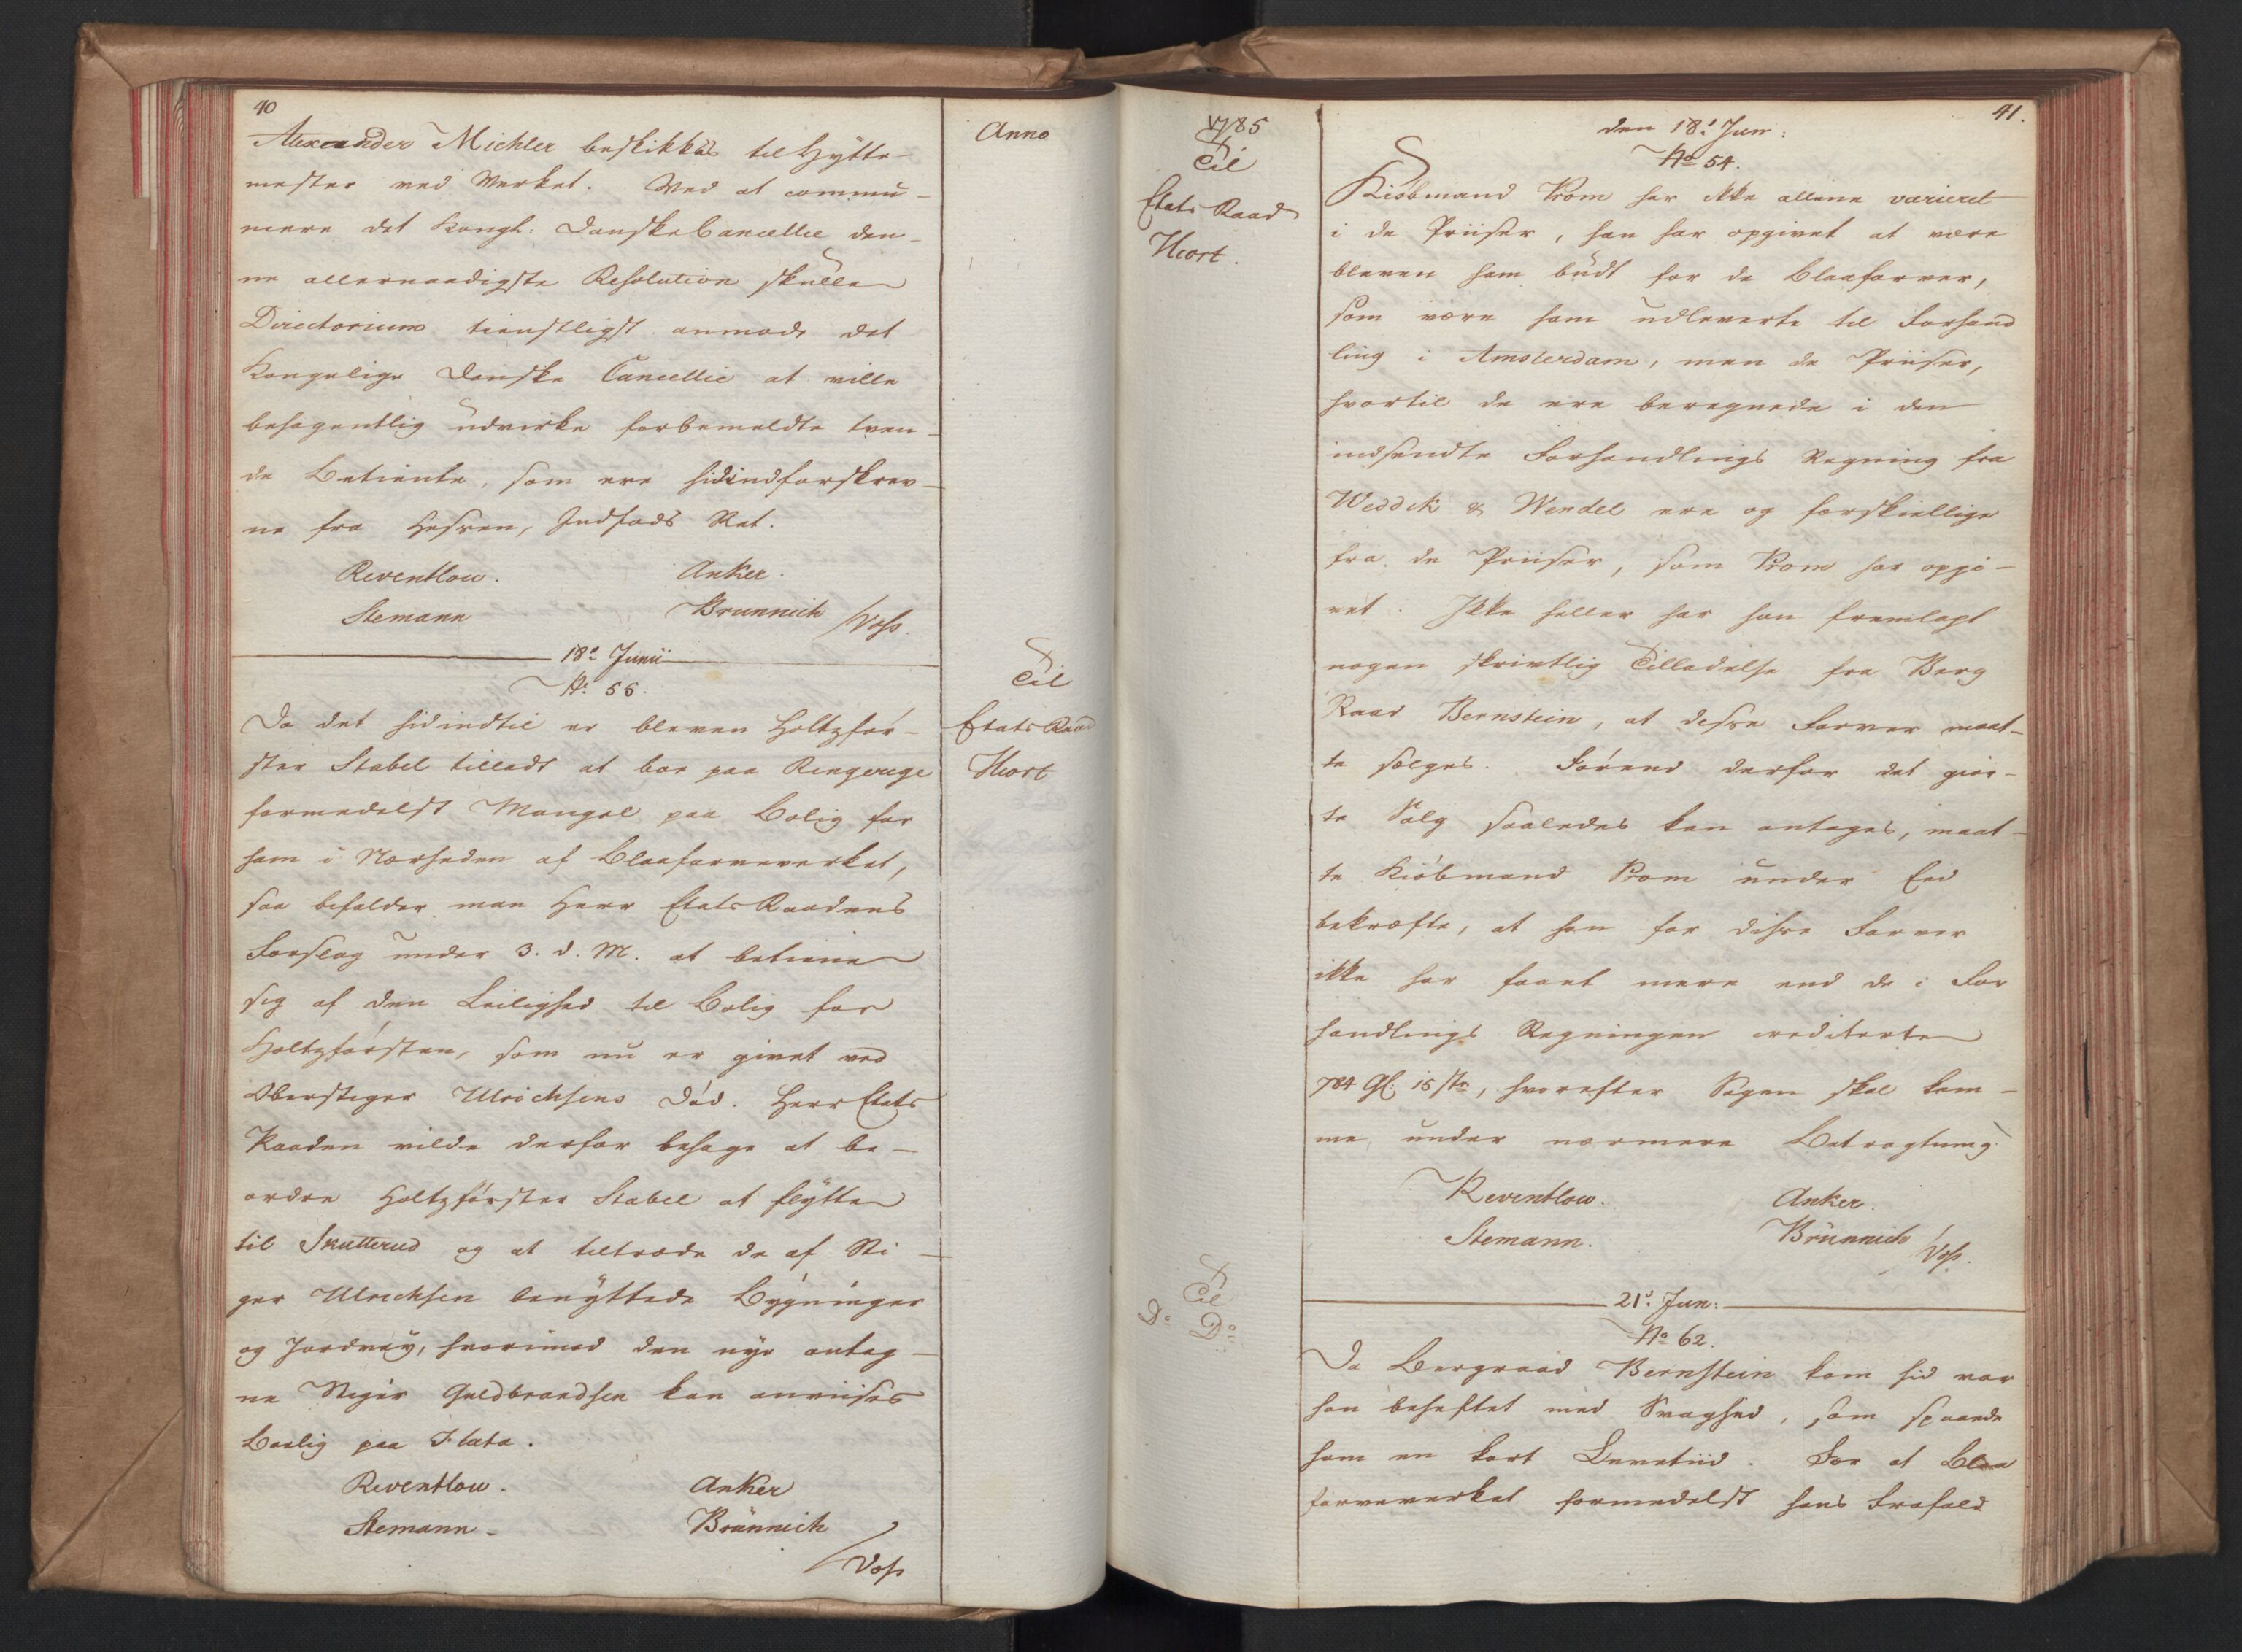 40
Alexander Michler beskikkes til Hytte-
mester ved Werket. Ved at commu-
nicere det Kongl: Danske Cancellie den-
ne allernaadigste Resolution skulle
Directorium tienstligst anmode det
Kongelige Danske Cancellie at ville
behagentlig udvirke forbemeldte tven-
de Betiente, som ere hidindforskrev-
ne fra Hessen, Indføds Ret.
Reventlow. Anker.
Stemann Brunnich /Voss.
18de Junii
No 55.
Da det hidindtil er bleven Holtzför-
ster Stabel tilladt at boe paa Ringerige
formedelst Mangel paa Bolig for
ham i Nærheden af Blaafarveverket,
saa befalder man Herr Etats Raadens
Forslag under 3. d. M. at betiene
sig af den Leilighed til Bolig for
Holtzförsten, som nu er givet ved
Oberstiger Ulrichsens Död. Herr Etats
Raaden vilde derfor behage at be-
ordre Holtzförster Stabel at flytte
til Skutterud og at tiltræde de af Sti-
ger Ulrichsen benyttede Bygninger
og Jordvey, hvorimod den nye antag-
ne Stiger Guldbrandsen kan anviises
Boelig paa Flata.
Reventlow. Anker
Stemann. Brünnich
/Voss
Anno
Til
Etats Raad
Hiort
1785
Til
Etats Raad
Hiort.
Til
Do Do
41.
den 18d Jun:
No 54.
Kiöbmand Prom har ikke allene varieret
i de Priiser, han har opgivet at være
bleven ham budt for de Blaafarver,
som vare ham udleverte til Forhand
ling i Amsterdam, men de Priiser,
hvortil de ere beregnede i den
indsendte Forhandlings Regning fra
Weddik & Wendel ere og forskiellige
fra de Priiser, som Prom har opgi-
vet. Ikke heller har han fremlagt
nogen skrivtlig Tilladelse fra Berg
Raad Bernstein, at disse Farver maat-
te sælges. Förend derfor det gior-
te Salg saaledes kan antages, maat-
te Kiöbmand Prom under Eed
bekræfte, at han for disse Farver
ikke har faaet mere end de i For
handlings Regningen crediterte
784 Gl: 15 str, hvorefter Sagen skal kom-
me under nærmere Betragtning.
Reventlow. Anker.
Stemann. Brünnich /Voss.
21d Jun:
No 62.
Da Bergraad Bernstein kom hid var
han beheftet med Svaghed, som spaaede
ham en kort Levetiid. For at Blaa
farveverket formedelst hans Frafald